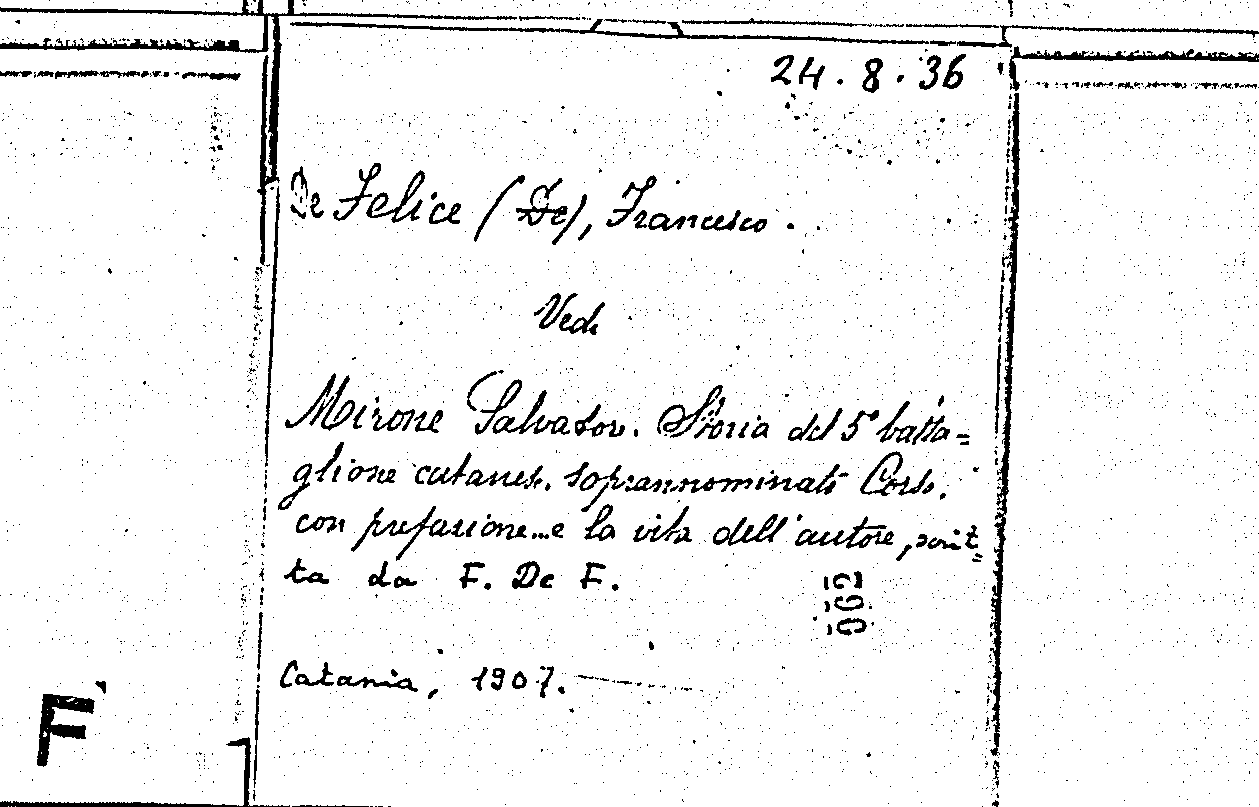 24.8.36
De Felice (De), Francesco.
Vedi
Mirone Salvatore. Storia del 5° batta=
glione catanese. soprannominato Corso.
con prefazione...e la vita dell'autore, scrit=
ta da F. De F.
062
Catania, 1907.
F